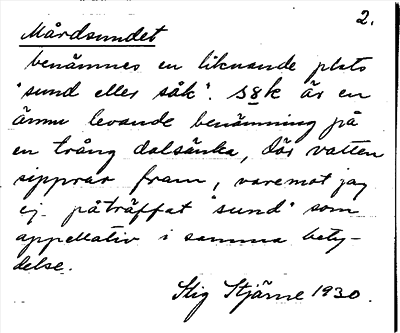 2.
Mårdsundet
benämnes en liknande plats
"sund eller såk". såk är en
ännu levande benämning på
en trång dalsänka, där vatten
sipprar fram, varemot jag
ej påträffat "sund" som
appellativ i samma bety-
delse.
Stig Stjärne 1930.